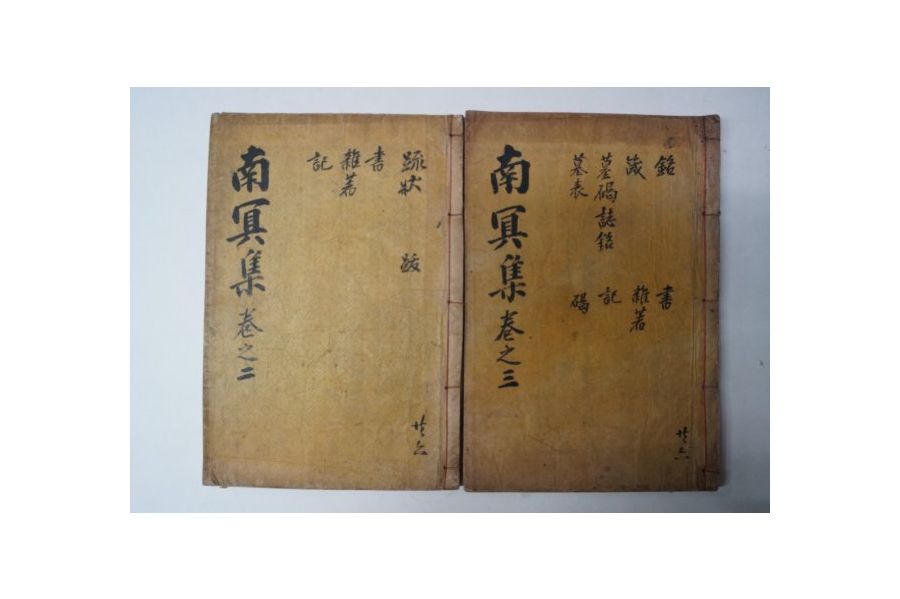 疏狀 跋
書
雜著
記
南冥集 卷之二
銘 書
箴 雜著
墓碣誌銘 記
墓表 碣
南冥集 卷之三